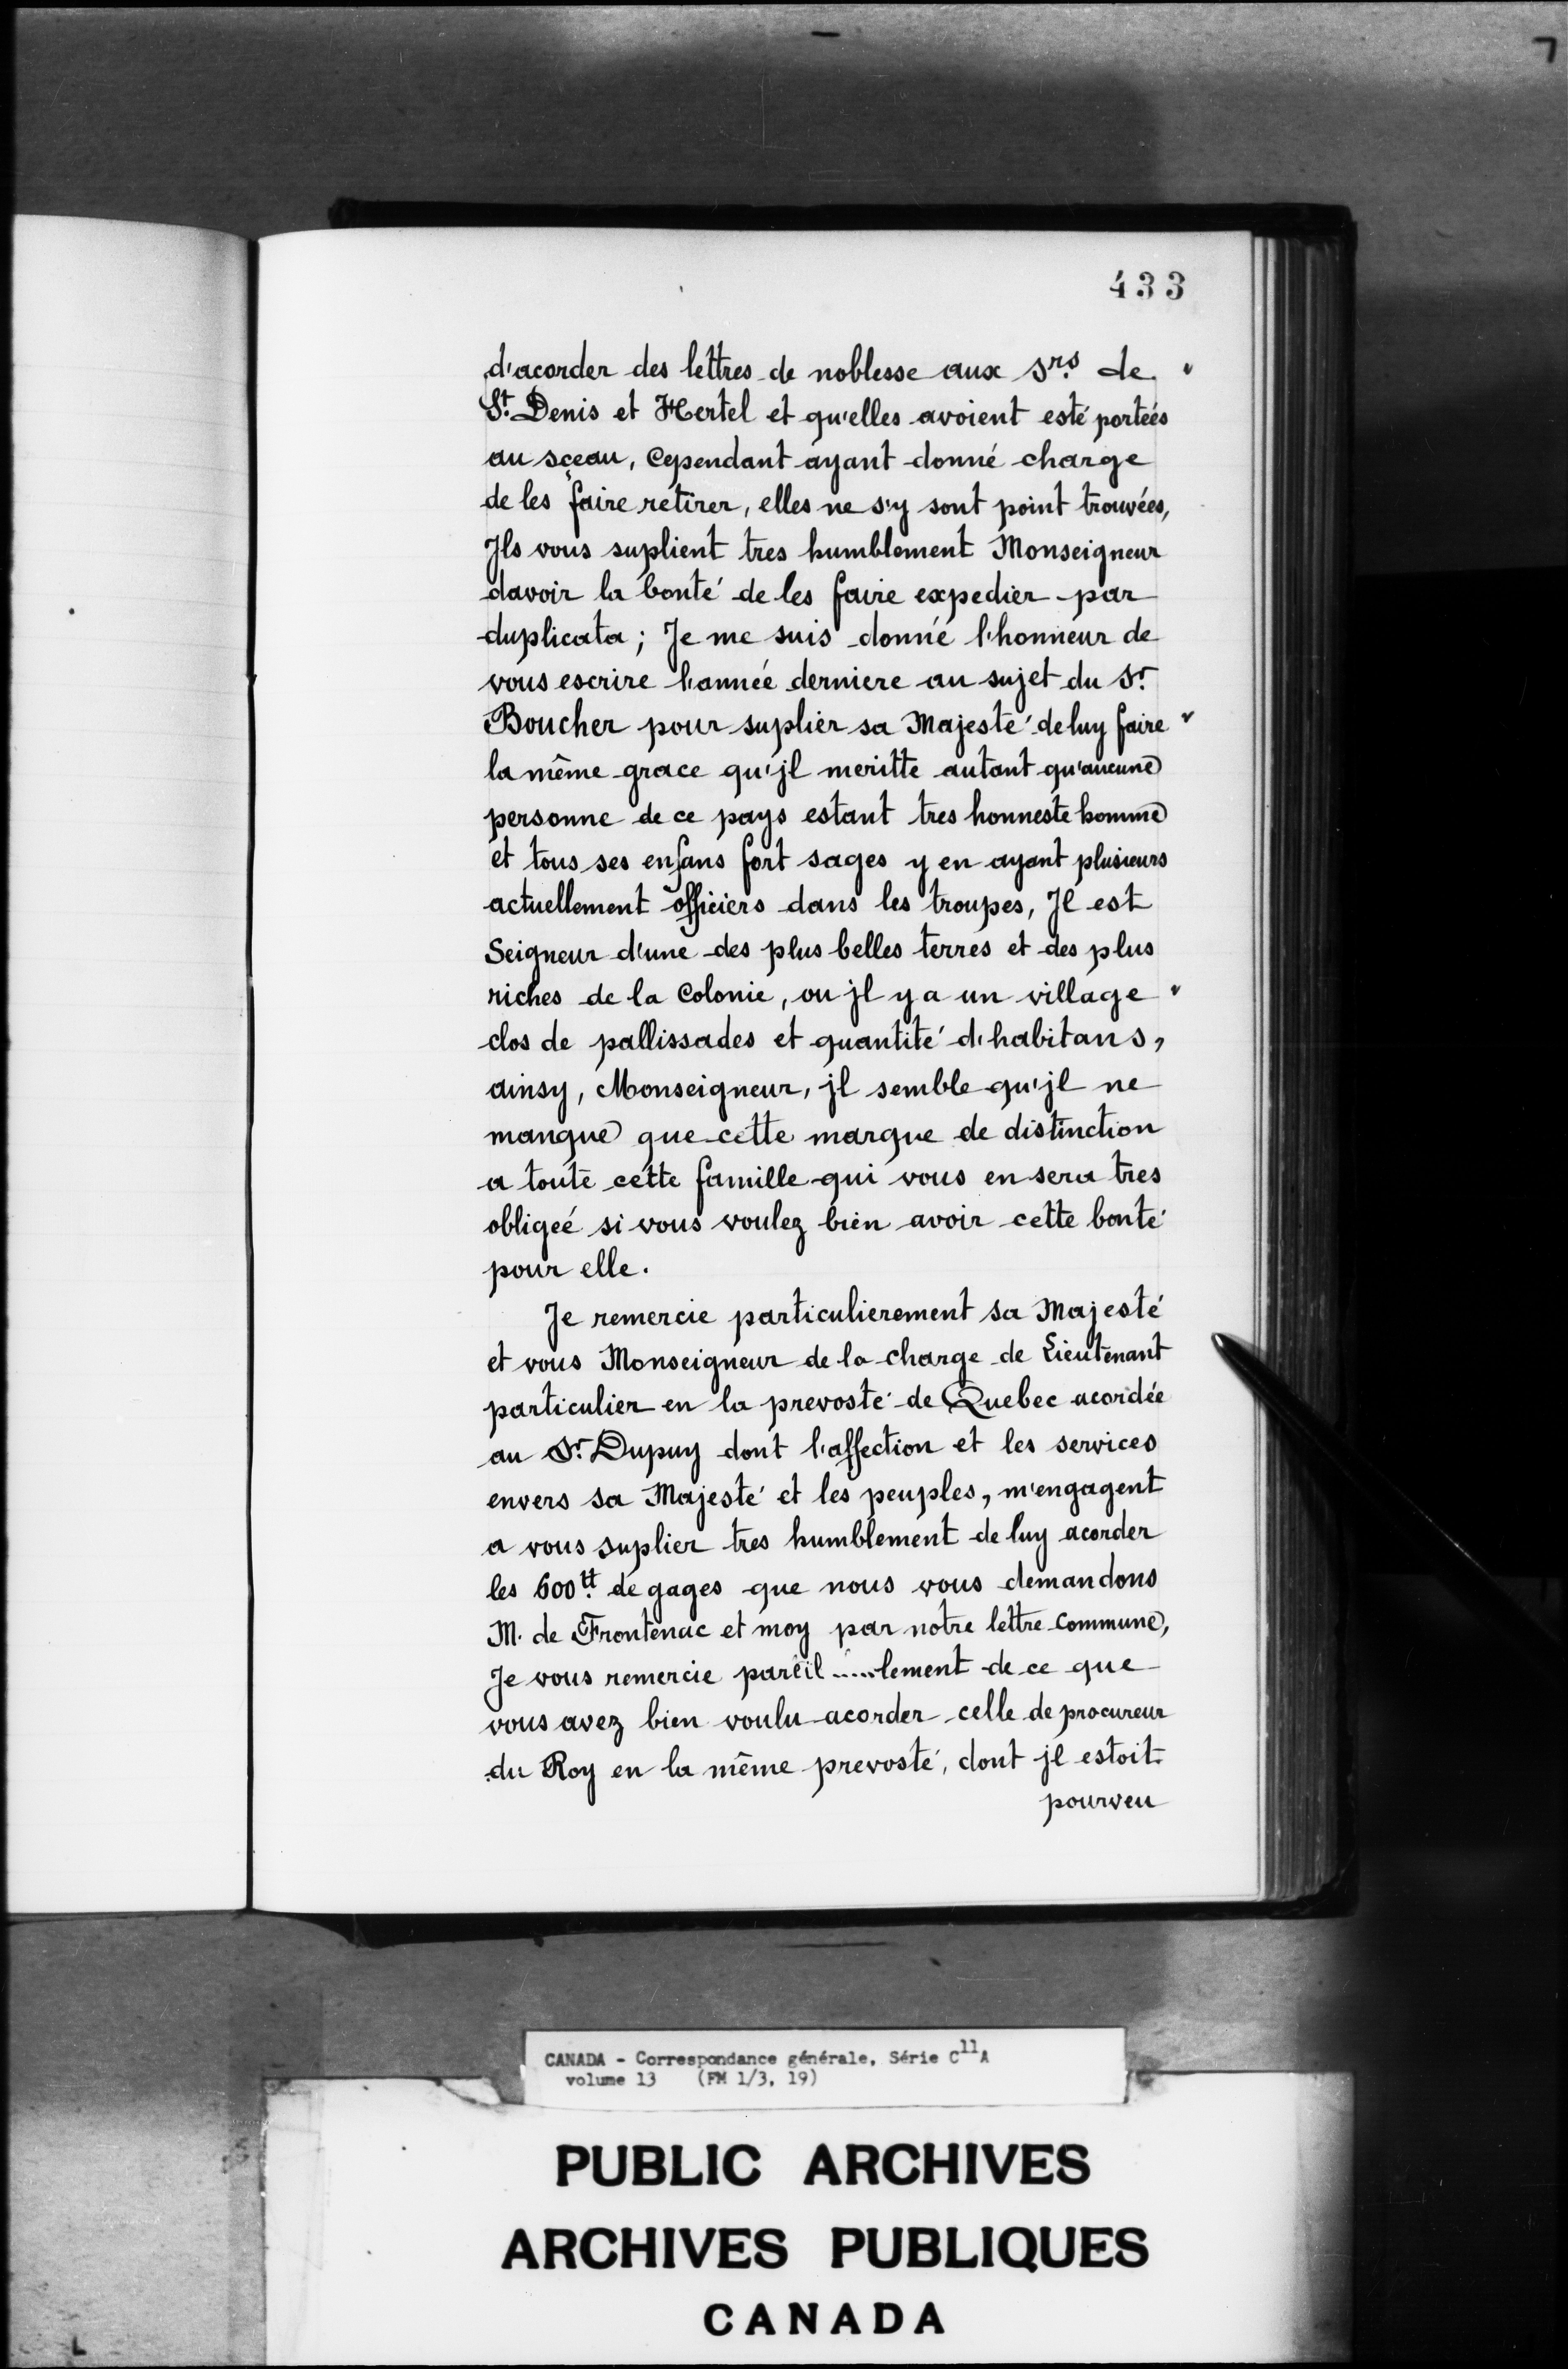 433
d'acorder des lettres de noblesse aux Srs de
St. Denis et Hertel et qu'elles avoient esté portées
au sceau, Cependant ayant donné charge
de les faire retirer, elles ne s'y sont point trouvées,
Jls vous suplient tres humblement Monseigneur
davoir la bonté de les faire expedier par
duplicata; Je me suis donné l'honneur de
vous escrire l'année derniere au sujet du Sr.
Boucher pour suplier sa Majesté de luy faire
la même grace qu'jl meritte autant qu'aucune
personne de ce pays estant tres honneste homme
et tous ses enfans fort sages y en ayant plusieurs
actuellement officiers dans les troupes, Jl est
Seigneur d'une des plus belles terres et des plus
riches de la Colonie, ou jl y a un village
clos de pallissades et quantité d'habitans,
ainsy, Monseigneur, jl semble qu'jl ne
manque que cette marque de distinction
a toute cette famille qui vous en sera tres
obligeé si vous voulez bien avoir cette bonté
pour elle.
Je remercie particulierement sa Majesté
et vous Monseigneur de la charge de Lieutenant
particulier en la prevosté de Quebec acordée
au Sr. Dupuy dont l'affection et les services
envers sa Majesté et les peuples, m'engagent
a vous suplier tres humblement de luy acorder
les 600tt. de gages que nous vous demandons
M. de Frontenac et moy par notre lettre Commune,
Je vous remercie pareil.....lement de ce que
vous avez bien voulu acorder celle de procureur
du Roy en la même prevosté, dont jl estoit
pourveu
CANADA - Correspondance générale, Série C11A
volume 13 (FM 1/3, 19)
PUBLIC ARCHIVES
ARCHIVES PUBLIQUES
CANADA